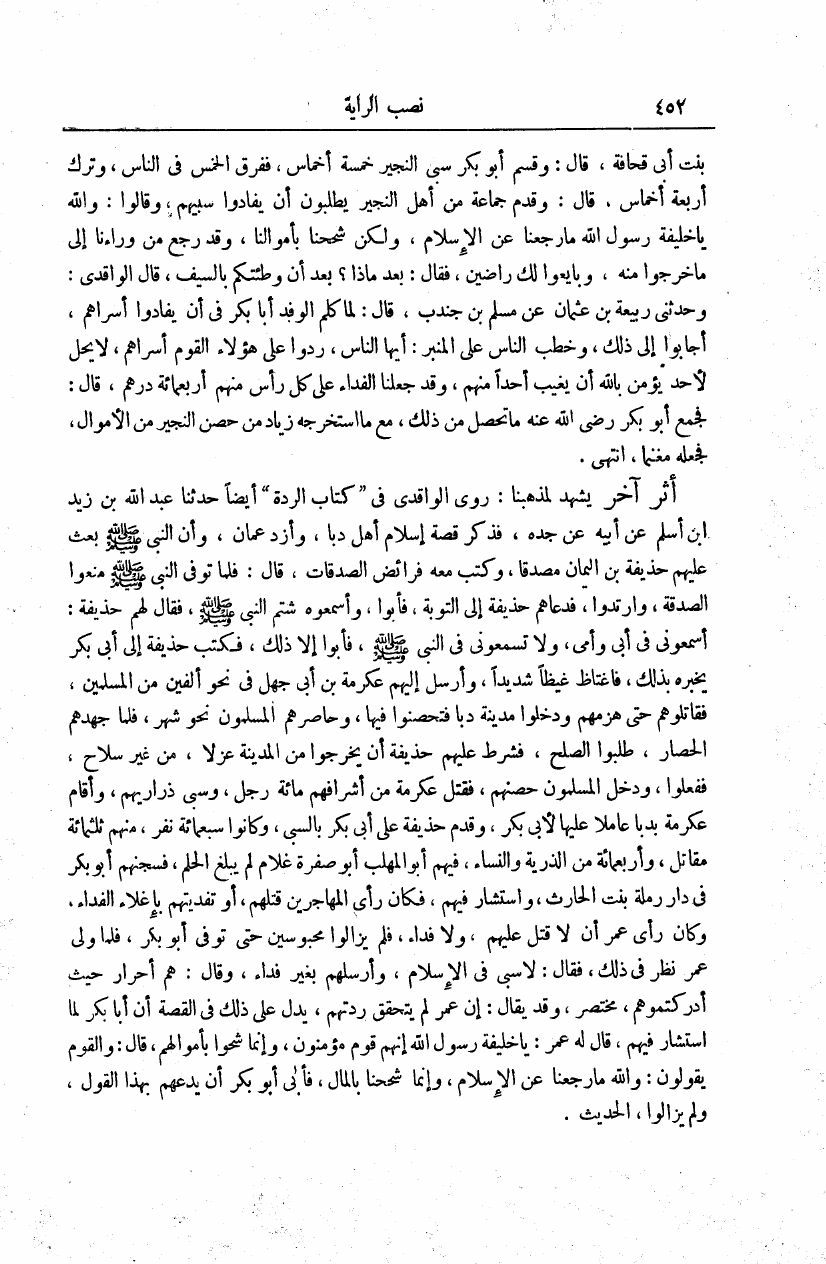 ٤٥٢ نصب الراية
بنت أبى قحافة ، قال : وقسم أبو بكر سبى النجير خمسة أخماس ، ففرق الخمس فى الناس ، وترك
أربعة أخماس . قال : وقدم جماعة من أهل النجير يطلبون أن يفادوا سبيهم ، وقالوا : والله
ياخليفة رسول الله مارجعنا عن الإسلام ، ولكن شححنا بأموالنا ، وقد رجع من وراءنا إلى
ماخرجوا منه ، وبايعوا لك راضين ، فقال : بعد ماذا ؟ بعد أن وطئتكم بالسيف ، قال الواقدى :
وحدثنى ربيعة بن عثمان عن مسلم بن جندب ، قال : لما كلم الوفد أبا بكر فى أن يفادوا أسراهم ،
أجابوا إلى ذلك ، وخطب الناس على المنبر : أيها الناس ، ردوا على هؤلاء القوم أسراهم ، لايحل
لأحد يؤمن بالله أن يغيب أحداً منهم ، وقد جعلنا الفداء على كل رأس منهم أربعمائة درهم ، قال :
فجمع أبو بكر رضى الله عنه ماتحصل من ذلك ، مع مااستخرجه زياد من حصن النجير من الأموال ،
فجعله مغنما ، انتهى .
أثر آخر يشهد لمذهبنا : روى الواقدى فى "كتاب الردة" أيضاً حدثنا عبد الله بن زيد
ابن أسلم عن أبيه عن جده ، فذكر قصة إسلام أهل دبا ، وأزد عمان ، وأن النبى ﷺ بعث
عليهم حذيفة بن اليمان مصدقا ، وكتب معه فرائض الصدقات ، قال : فلما توفى النبى ﷺ منعوا
الصدقة ، وارتدوا ، فدعاهم حذيفة إلى التوبة ، فأبوا ، وأسمعوه شتم النبى ﷺ ، فقال لهم حذيفة :
أسمعونى فى أبى وأمى ، ولا تسمعونى فى النبى ﷺ ، فأبوا إلا ذلك ، فكتب حذيفة إلى أبى بكر
يخبره بذلك ، فاغتاظ غيظاً شديداً ، وأرسل إليهم عكرمة بن أبى جهل فى نحو ألفين من المسلمين ،
فقاتلوهم حتى هزمهم ودخلوا مدينة دبا فتحصنوا فيها ، وحاصرهم المسلمون نحو شهر ، فلما جهدهم
الحصار ، طلبوا الصلح ، فشرط عليهم حذيفة أن يخرجوا من المدينة عزلا ، من غير سلاح ،
ففعلوا ، ودخل المسلمون حصنهم ، فقتل عكرمة من أشرافهم مائة رجل ، وسبى ذراريهم ، وأقام
عكرمة بدبا عاملا عليها لأبى بكر ، وقدم حذيفة على أبى بكر بالسبى ، وكانوا سبعمائة نفر ، منهم ثلثمائة
مقاتل ، وأربعمائة من الذرية والنساء ، فيهم أبو المهلب أبو صفرة غلام لم يبلغ الحلم ، فسجنهم أبو بكر
فى دار رملة بنت الحارث ، واستشار فيهم ، فكان رأى المهاجرين قتلهم ، أو تفديتهم بإغلاء الفداء ،
وكان رأى عمر أن لا قتل عليهم ، ولا فداء ، فلم يزالوا محبوسين حتى توفى أبو بكر ، فلما ولى
عمر نظر فى ذلك ، فقال : لاسبى فى الإسلام ، وأرسلهم بغير فداء ، وقال : هم أحرار حيث
أدركتموهم ، مختصر ، وقد يقال : إن عمر لم يتحقق ردتهم ، يدل على ذلك فى القصة أن أبا بكر لما
استشار فيهم ، قال له عمر : ياخليفة رسول الله إنهم قوم مؤمنون ، وإنما شحوا بأموالهم ، قال : والقوم
يقولون : والله مارجعنا عن الإسلام ، وإنما شححنا بالمال ، فأبى أبو بكر أن يدعهم بهذا القول ،
ولم يزالوا ، الحديث .